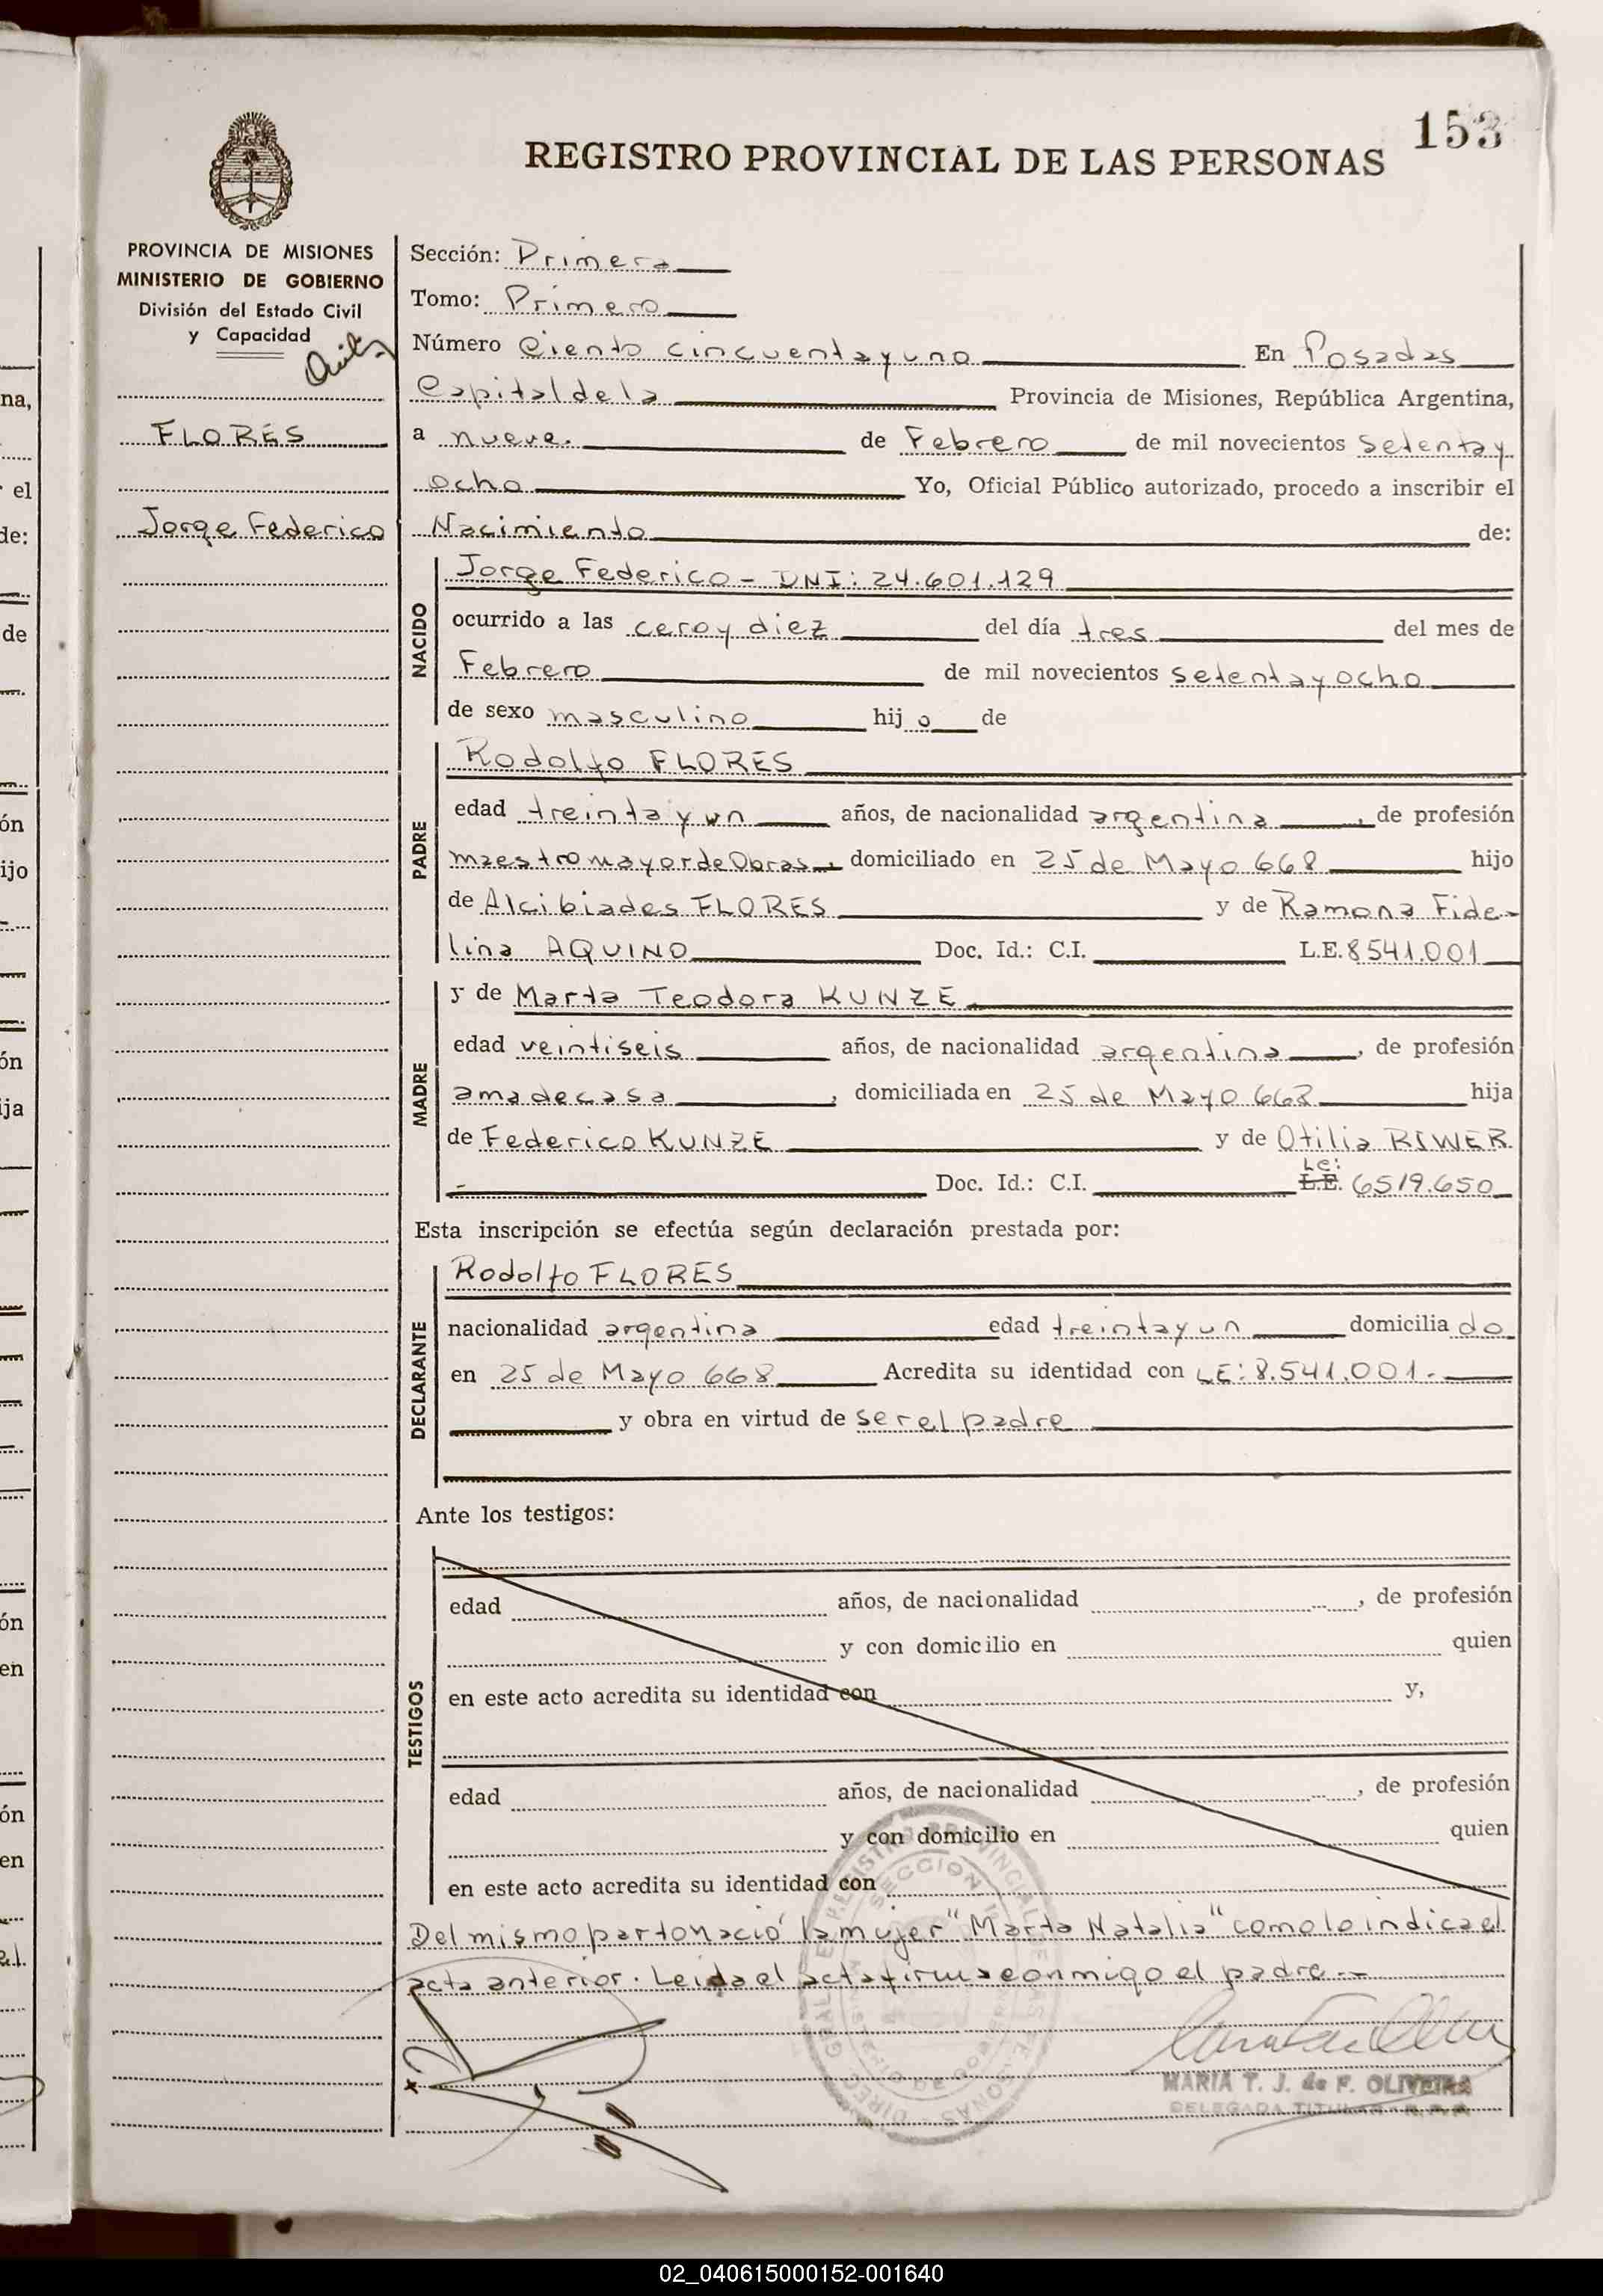 153
REGISTRO PROVINCIAL DE LAS PERSONAS
PROVINCIA DE MISIONES
MINISTERIO DE GOBIERNO
División del Estado Civil
y Capacidad
FLORES
Jorge Federico
Sección: Primera
Tomo: Primero
Número Ciento cincuenta y uno En Posadas
Capital de la Provincia de Misiones, República Argentina,
a nueve. de Febrero de mil novecientos setenta y
ocho Yo, Oficial Público autorizado, procedo a inscribir el
Nacimiento de:
NACIDO
Jorge Federico - DNI: 24.601.129
ocurrido a las cero y diez del día tres del mes de
Febrero de mil novecientos setenta y ocho
de sexo masculino hijo de
PADRE
Rodolfo FLORES
edad treinta y un años, de nacionalidad argentina, de profesión
maestro mayor de Obras, domiciliado en 25 de Mayo 668 hijo
de Alcibiades FLORES y de Ramona Fide-
lina AQUINO Doc. Id.: C.I. L.E. 8541.001
MADRE
y de Marta Teodora KUNZE
edad veintiseis años, de nacionalidad argentina, de profesión
ama de casa, domiciliada en 25 de Mayo 668 hija
de Federico KUNZE y de Otilia RIWER
Lc:
- Doc. Id.: C.I. L.E. 6519.650
Esta inscripción se efectúa según declaración prestada por:
DECLARANTE
Rodolfo FLORES
nacionalidad argentina edad treinta y un domiciliado
en 25 de Mayo 668 Acredita su identidad con LE: 8.541.001.-
y obra en virtud de ser el padre
Ante los testigos:
TESTIGOS
edad años, de nacionalidad , de profesión
y con domicilio en quien
en este acto acredita su identidad con y,
edad años, de nacionalidad , de profesión
y con domicilio en quien
en este acto acredita su identidad con
Del mismo parto nació la mujer "Marta Natalia" como lo indica el
acta anterior. Leida el acta firma conmigo el padre.-
MARIA T. J. de F. OLIVEIRA
DELEGADA TITULAR - R.P.P.
na,
el
de:
de
ón
ijo
ón
ija
ón
en
ón
en
02_040615000152-001640